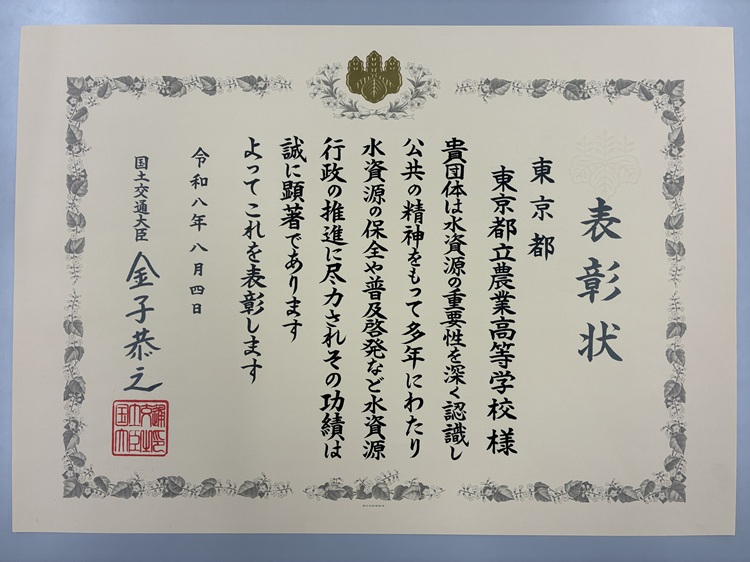 表彰状
東京都
東京都立農業高等学校 様
貴団体は水資源の重要性を深く認識し
公共の精神をもって多年にわたり
水資源の保全や普及啓発など水資源
行政の推進に尽力されその功績は
誠に顕著であります
よってこれを表彰します
令和八年八月四日
国土交通大臣 金子恭之